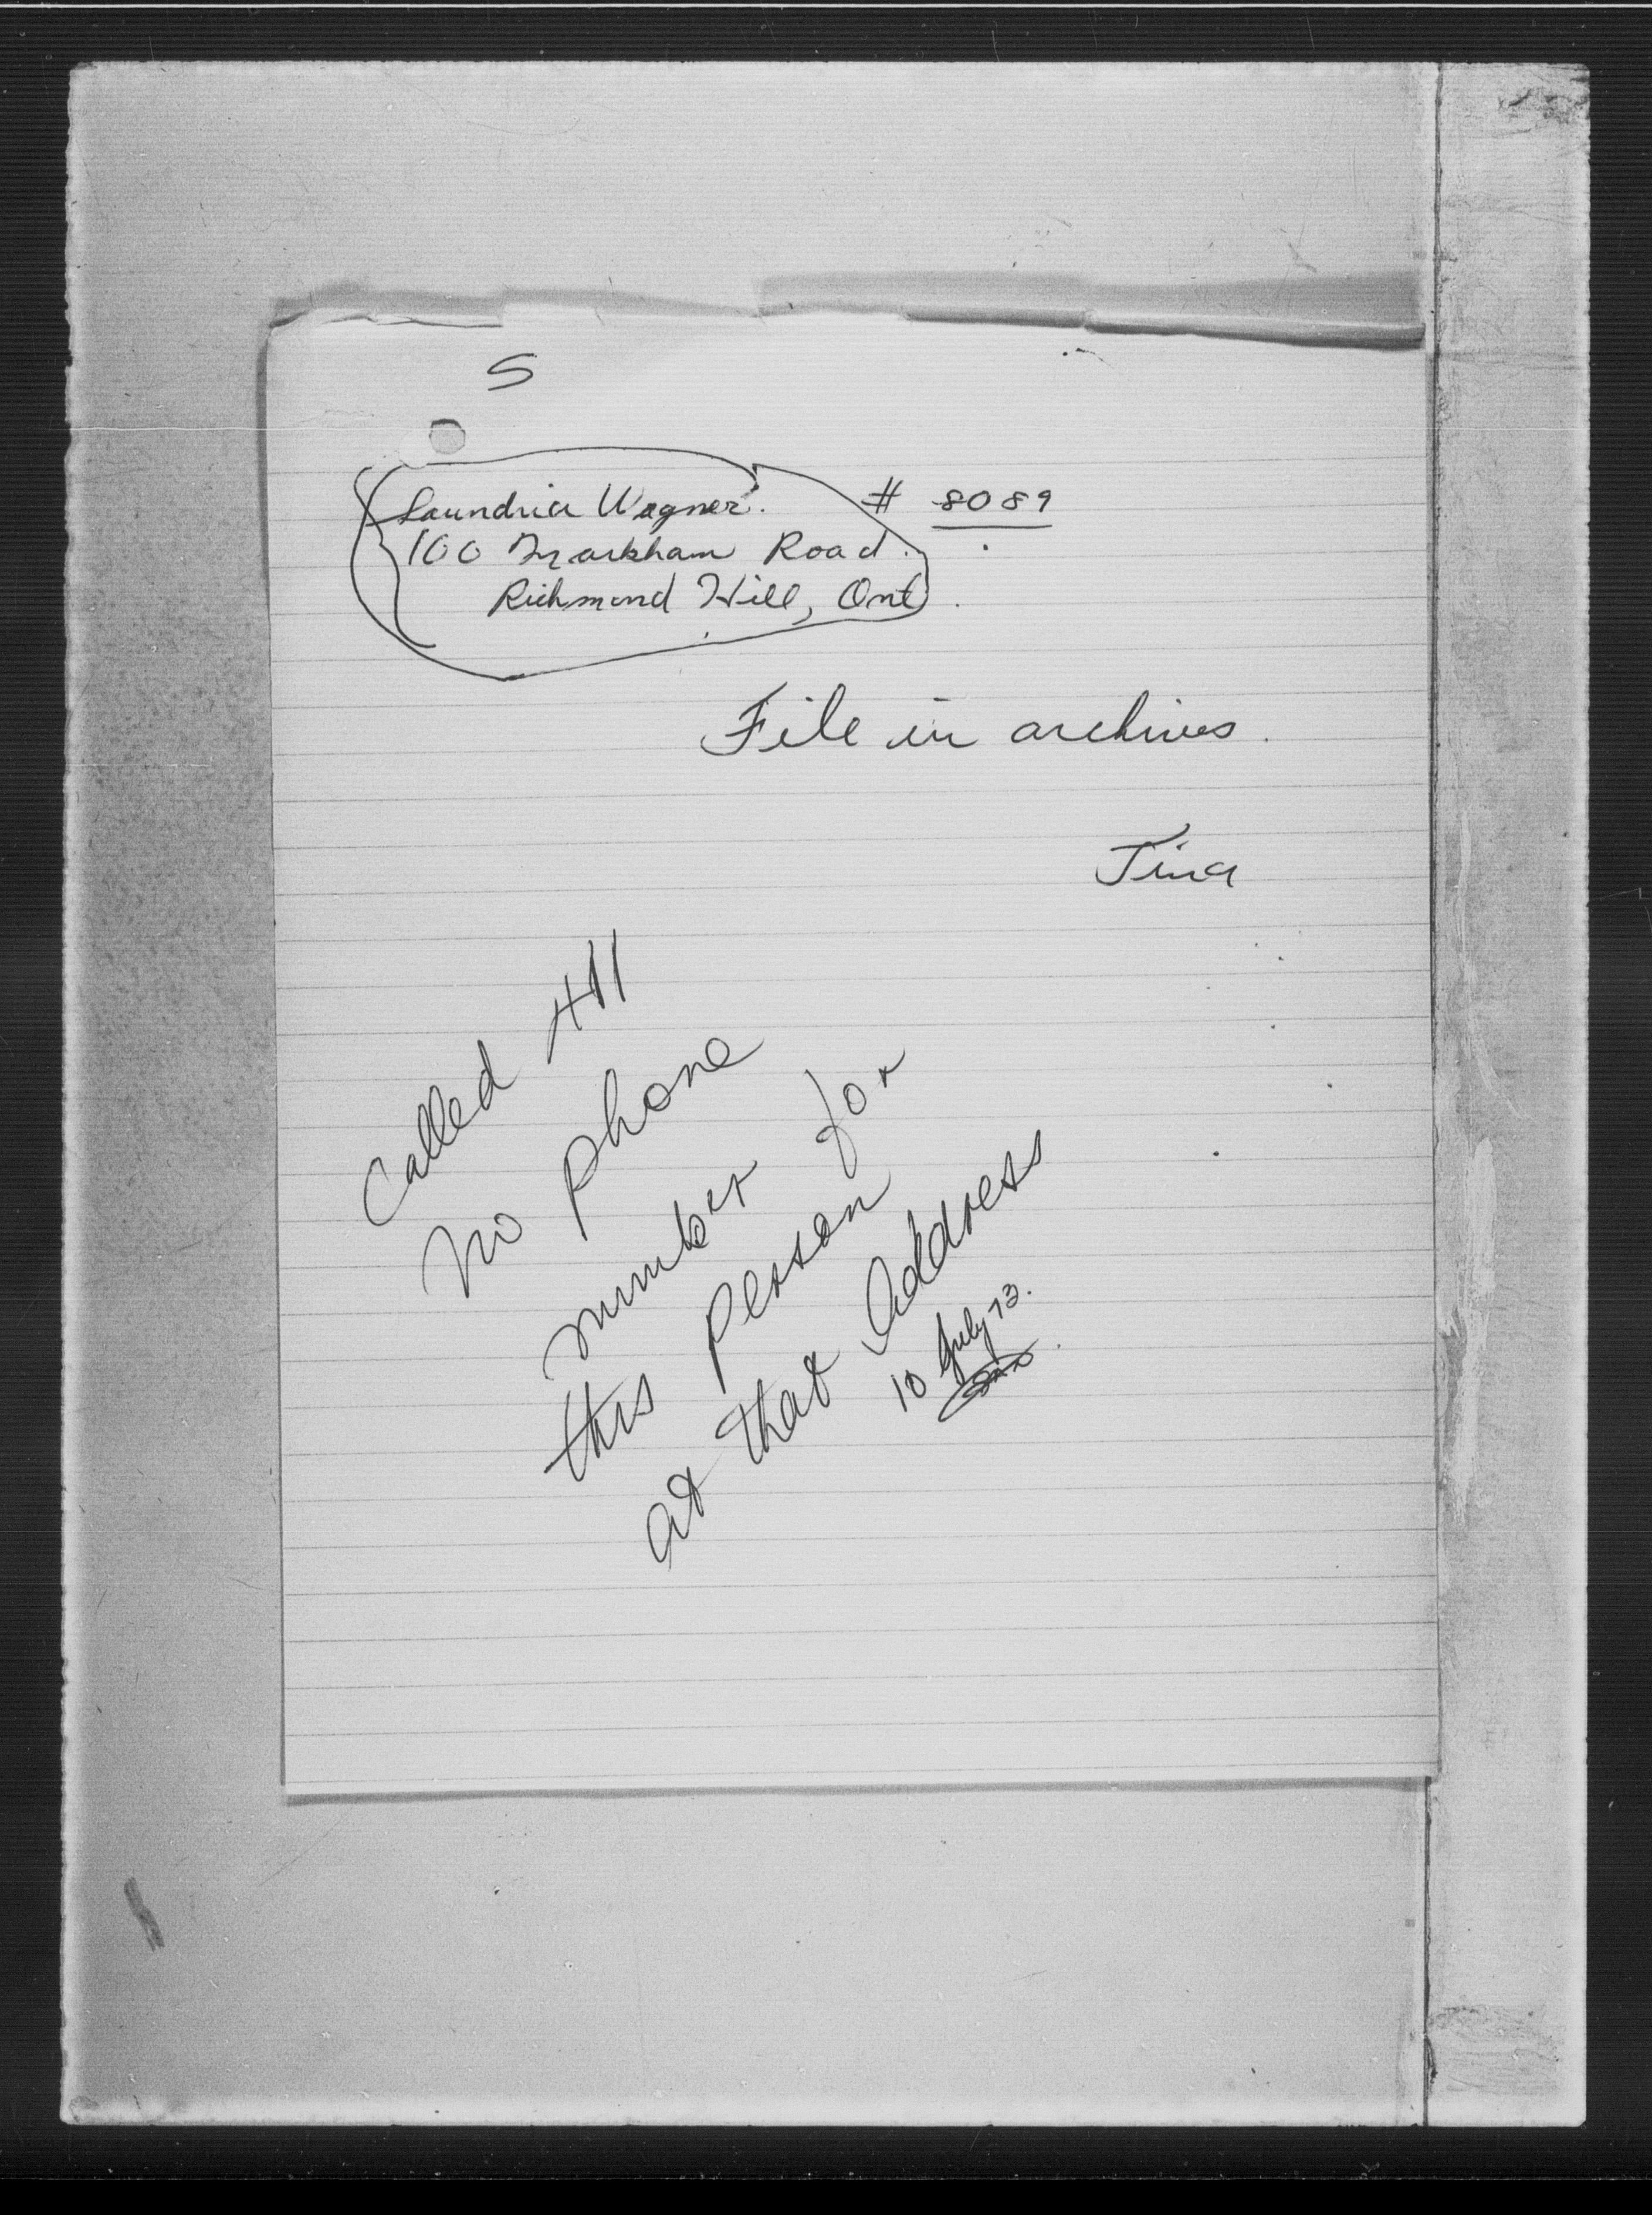 S
Laundria Wagner.
# 8089
100 Markham Road.
Richmond Hill, Ont.
File in archives.
Tina
Called 411
No phone
number for
this person
at that address
10 July 73.